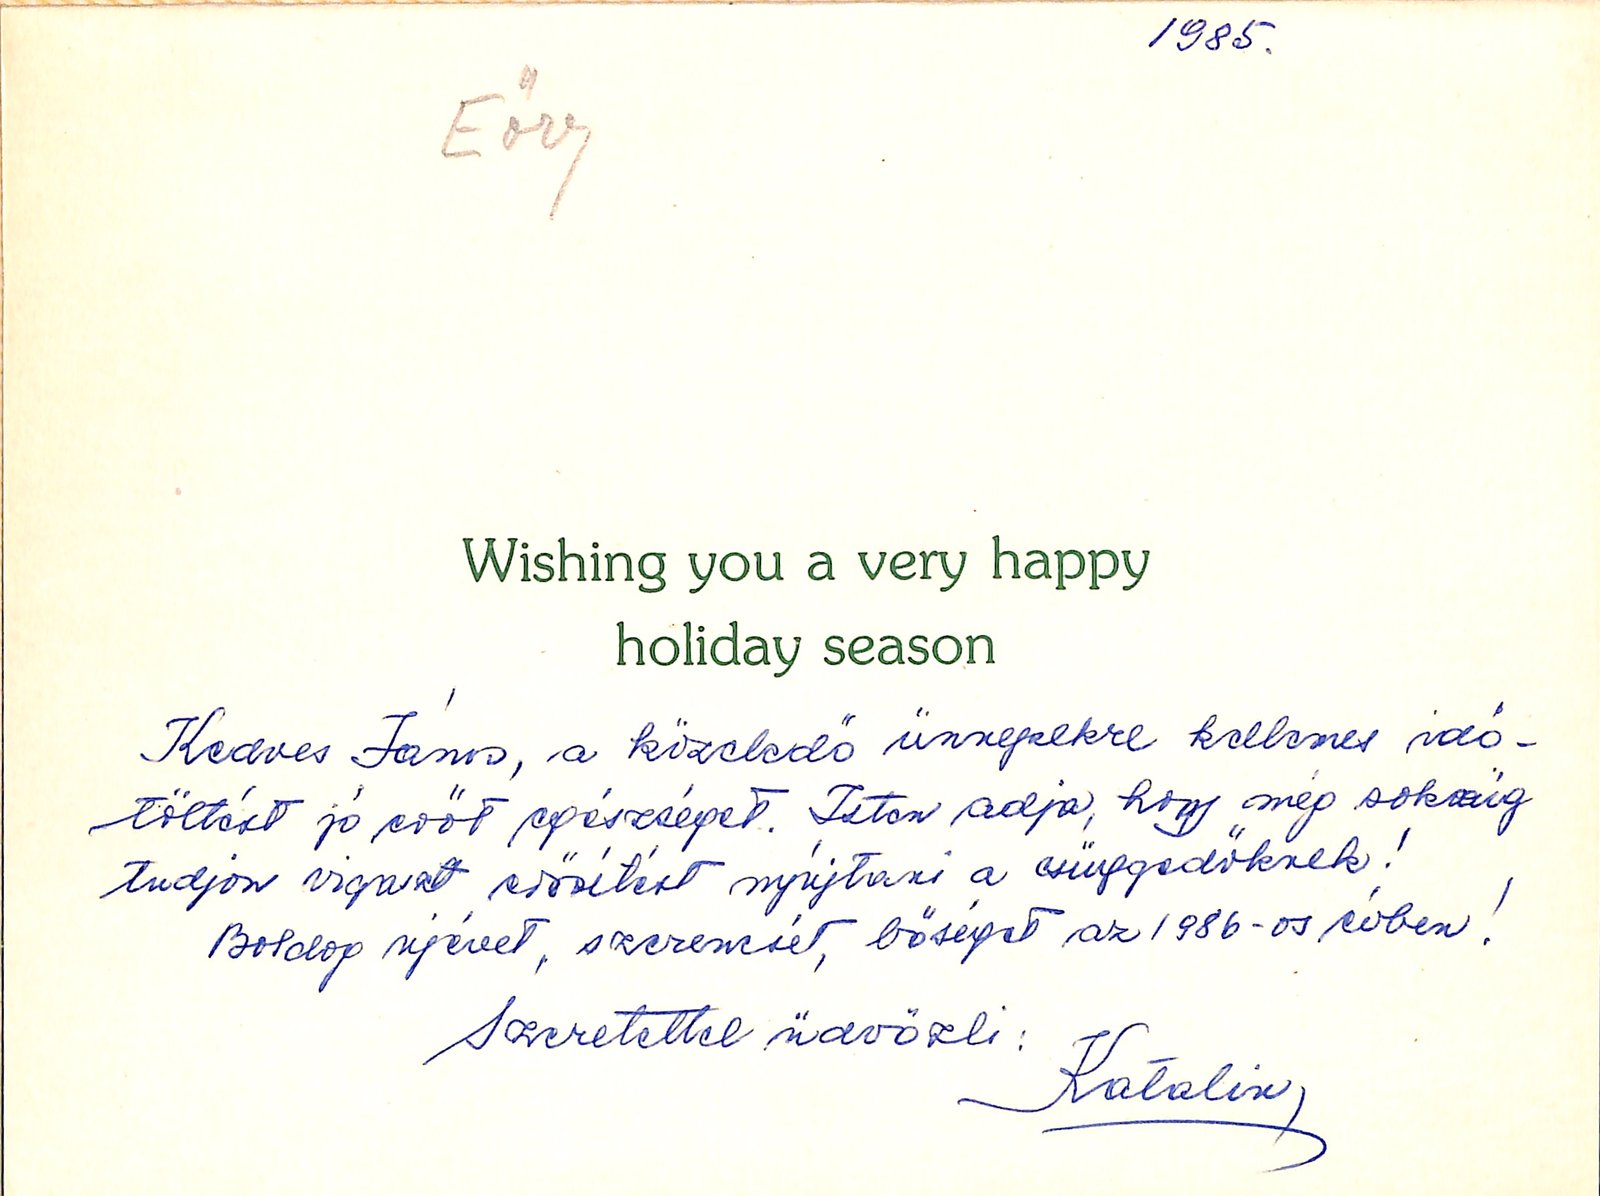 1985.
Eőry
Wishing you a very happy
holiday season
Kedves János, a közeledő ünnepekre kellemes idő-
töltést jó erőt egészséget. Isten adja, hogy még sokáig
tudjon vigaszt erősítést nyújtani a csüggedőknek!
Boldog újévet, szerencsét, bőséget az 1986-os évben!
Szeretettel üdvözli:
Katalin